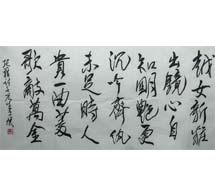 越女新妝
出鏡心自
知明艷更
沉吟齊紈
未足時人
貴一曲菱
歌敵萬金